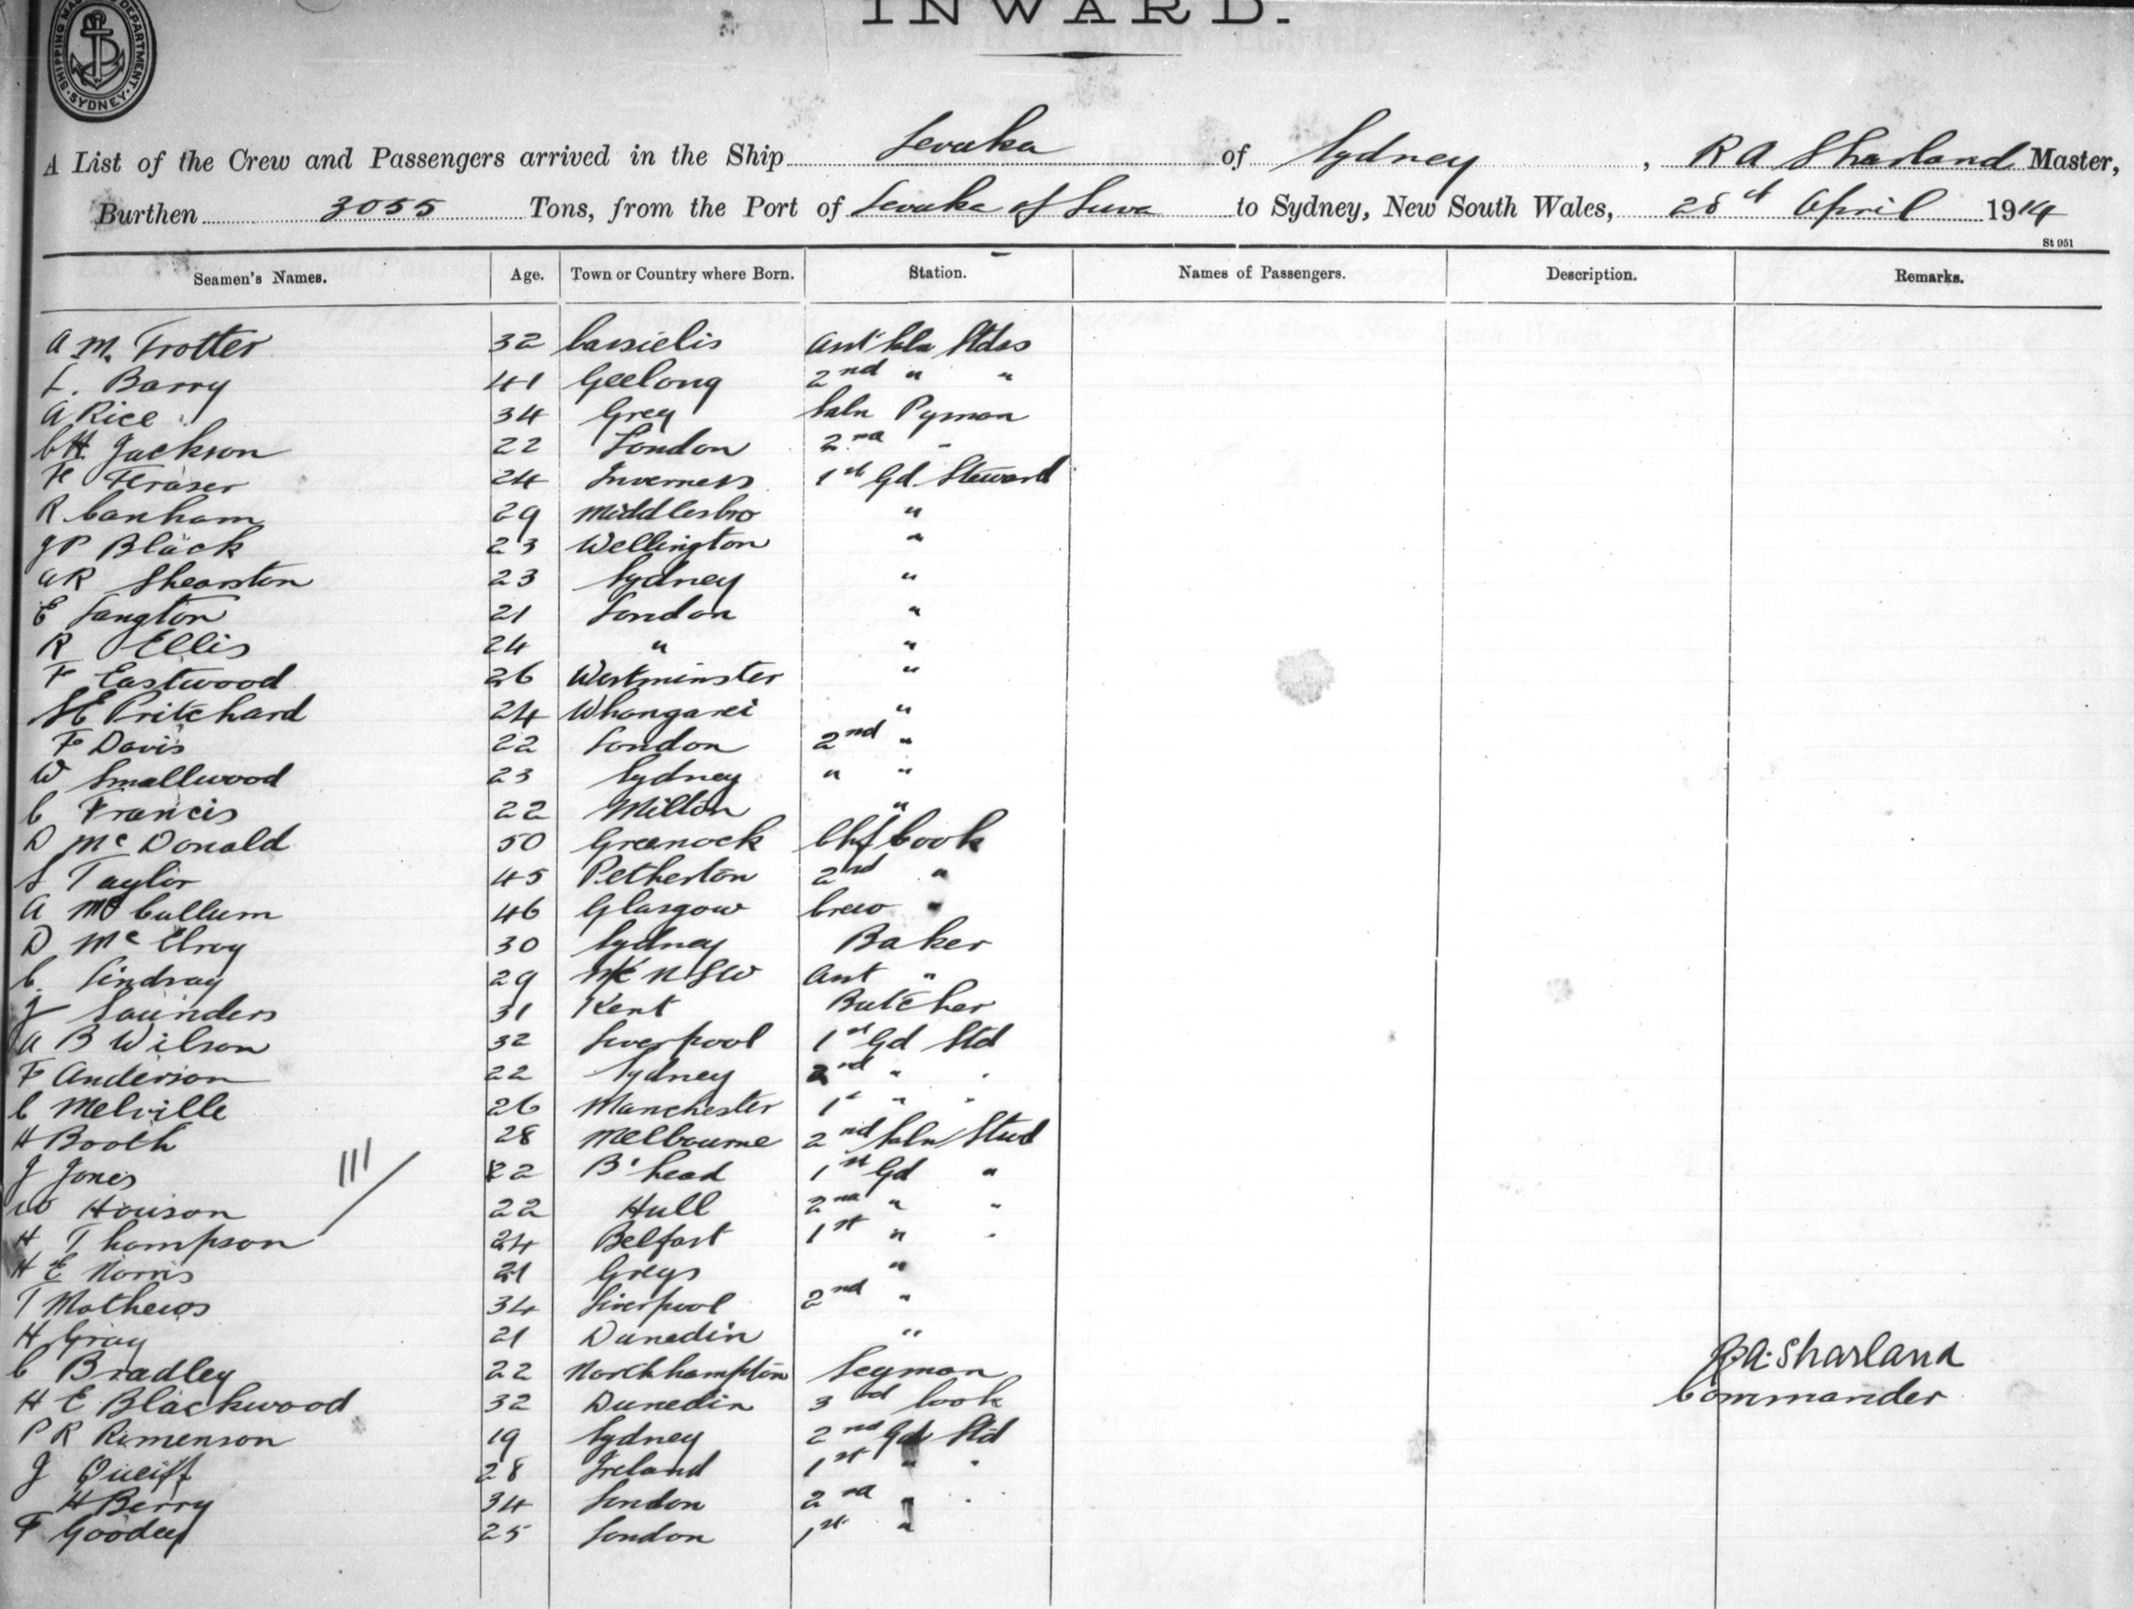 INWARD.
SHIPPING MASTER'S DEPARTMENT. SYDNEY.
A List of the Crew and Passengers arrived in the Ship Levuka of Sydney, R A Sharland Master,
Burthen 3055 Tons, from the Port of Levuka & Suva to Sydney, New South Wales, 28th April 1914
St 951
Seamen's Names. Age. Town or Country where Born. Station. Names of Passengers. Description. Remarks.
A M Trotter 32 Asst Saln Stdss
L. Barry 41 Geelong 2nd " "
A Rice 34 Grey Saln Pyman
C H Jackson 22 London 2nd "
H Fraser 24 Inverness 1st Gd Steward
R Canham 29 Middlesbro "
J P Black 23 Wellington "
A R Shearston 23 Sydney "
E Langton 21 London "
R Ellis 24 " "
F Eastwood 26 Westminster "
H E Pritchard 24 Whangarei "
F Davis 22 London 2nd "
W Smallwood 23 Sydney " "
C Francis 22 Milton "
D McDonald 50 Greenock Chf Cook
S Taylor 45 Petherton 2nd "
A McCullum 46 Glasgow Crew "
D McElroy 30 Sydney Baker
C. Lindsay 29 NSW Asst "
J Saunders 31 Kent Butcher
A B Wilson 32 Liverpool 1st Gd Std
F Anderson 22 Sydney 2nd " "
C Melville 26 Manchester 1st " "
H Booth 28 Melbourne 2nd Saln Stwd
J Jones 22 B'head 1st Gd "
W Houison 22 Hull 2nd " "
H Thompson 24 Belfast 1st " "
H E Norris 21 Greys "
T Mathews 34 Liverpool 2nd "
H Gray 21 Dunedin "
C Bradley 22 Northhampton Scyman
H E Blackwood 32 Dunedin 3rd Cook
P R Rumenson 19 Sydney 2nd Gd Std
J 28 Ireland 1st " "
H Berry 34 London 2nd " "
F Goodey 25 London 1st "
R. A. Sharland
Commander